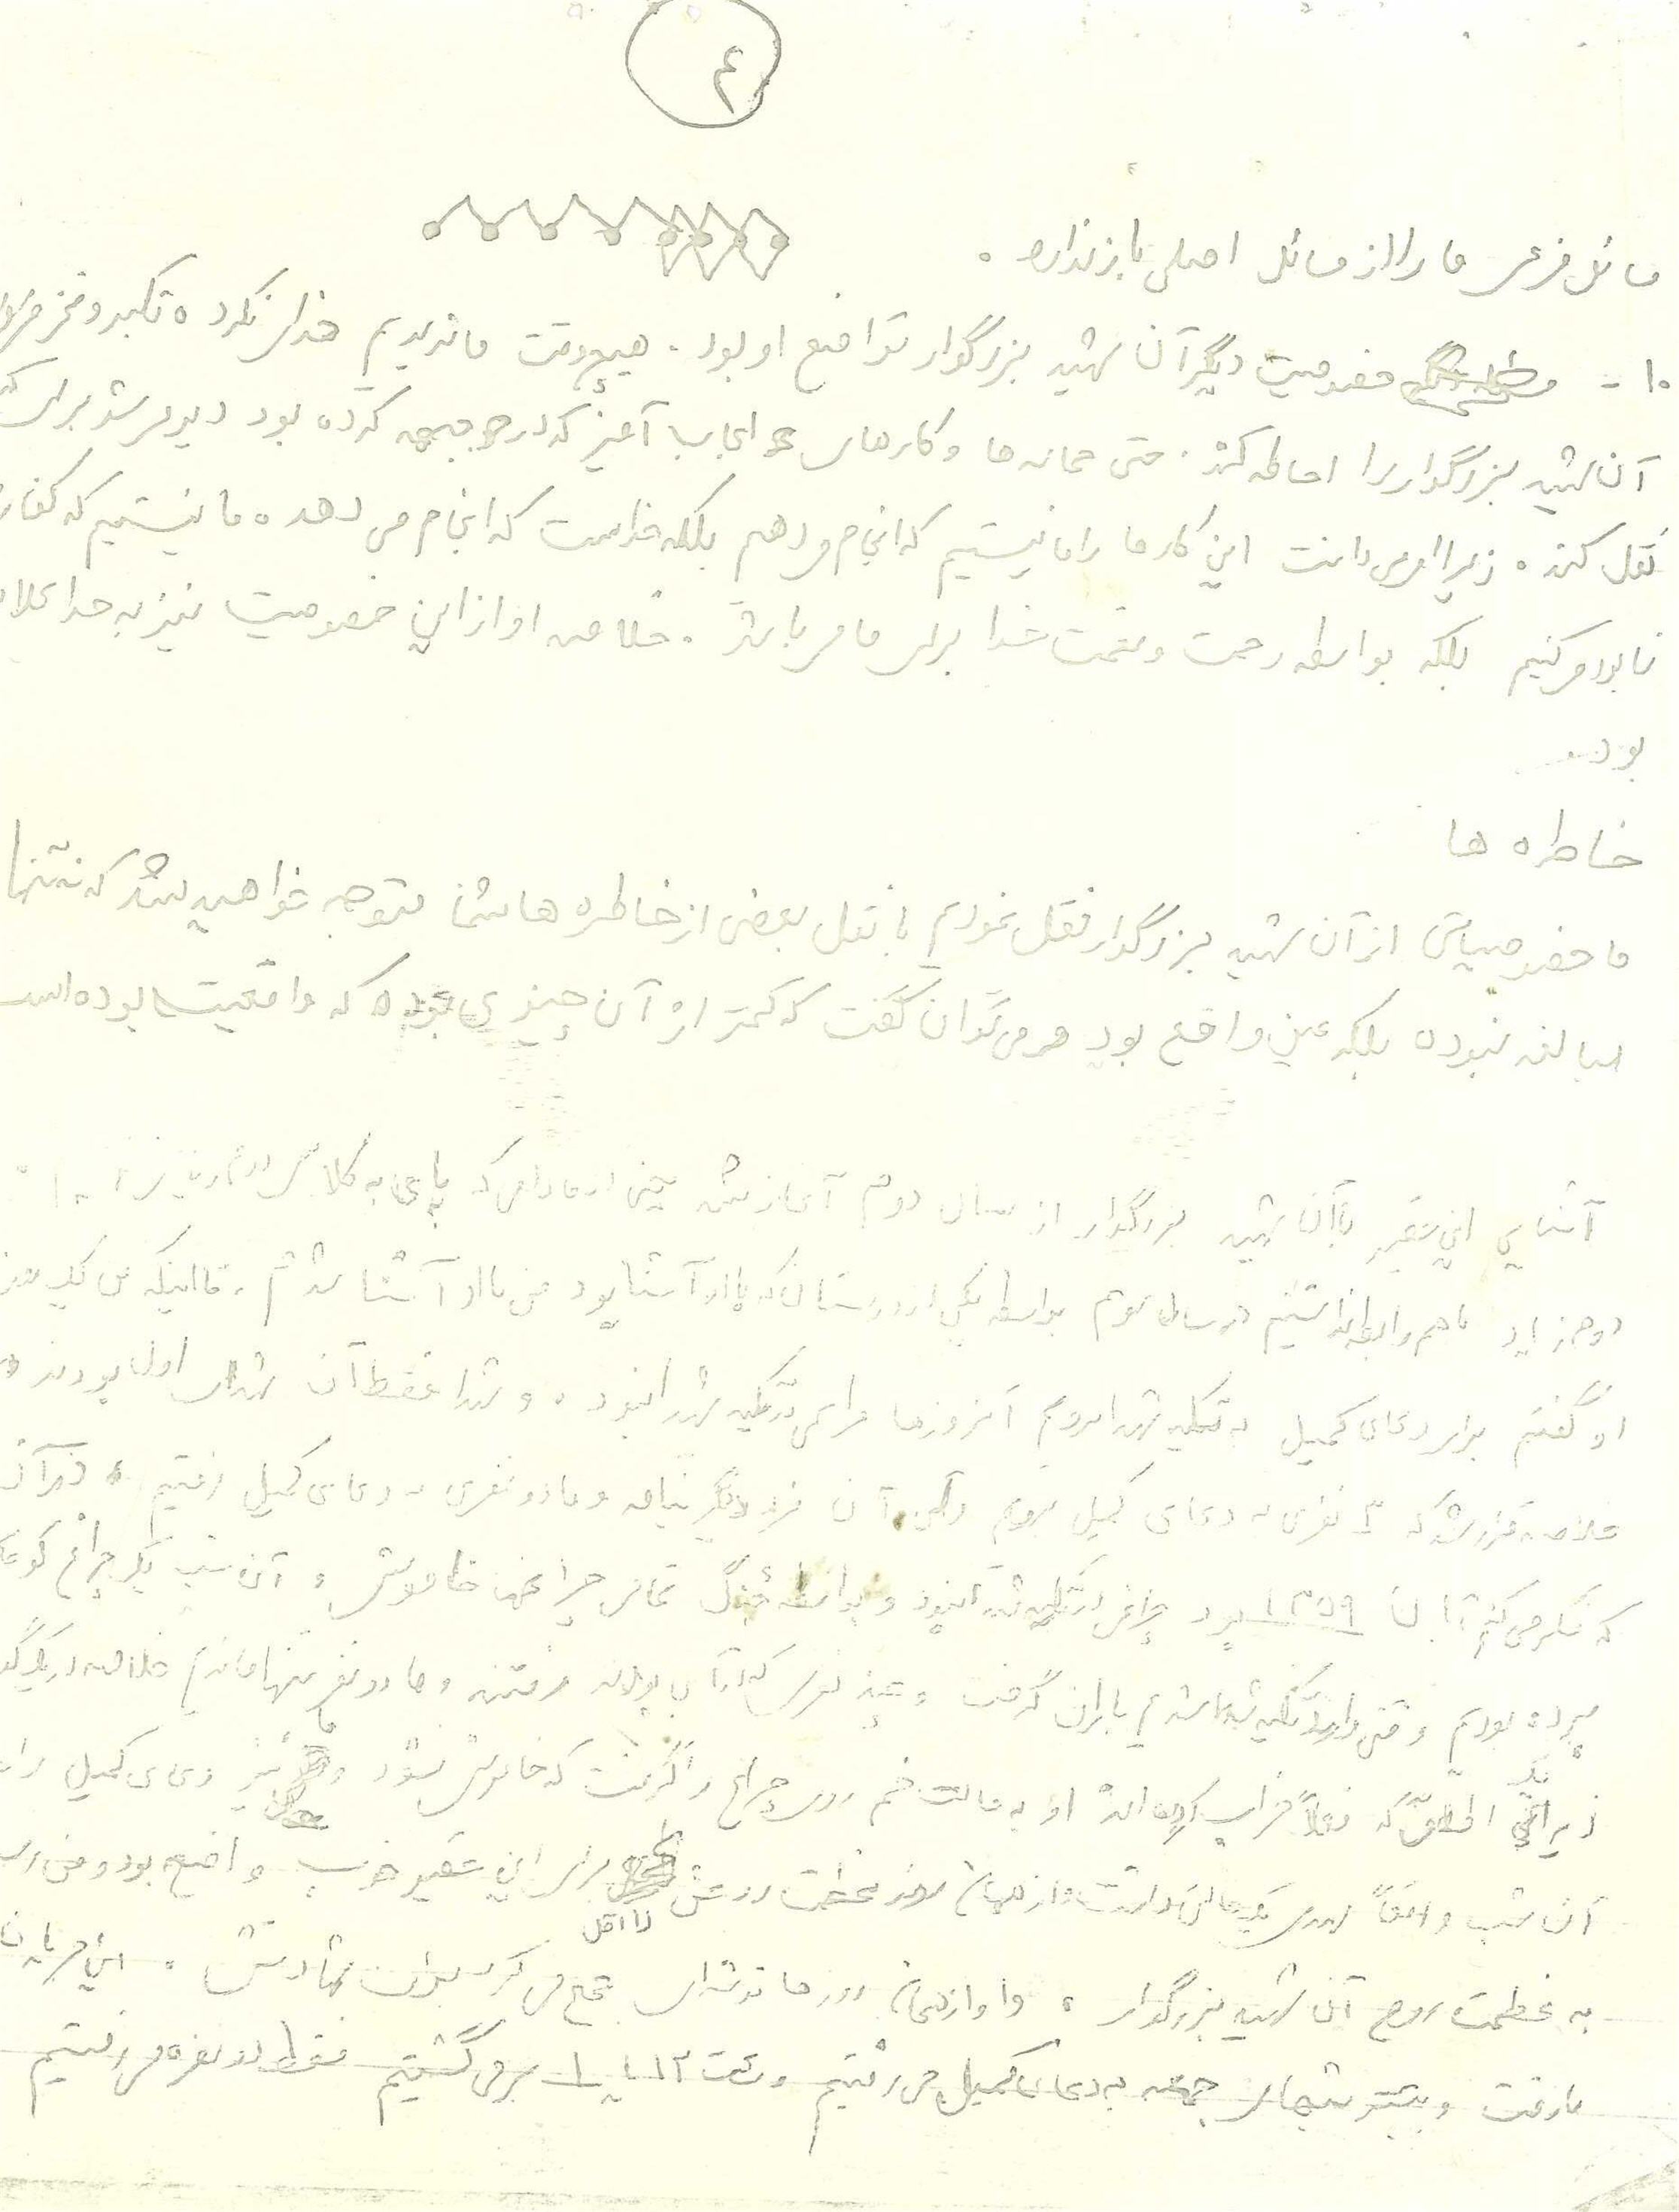 ۴
مسائل فرعی ما را از مسائل اصلی باز ندارد .
۱۰ - خصوصیت دیگر آن شهید بزرگوار تواضع او بود . هیچوقت ما ندیدیم خدای نکرده تکبر و فخر فروشی
آن شهید بزرگوار را احاطه کند . حتی حماسه ها و کارهای اعجاب آمیز که در جبهه کرده بود دیده شد برای کسی
نقل کند . زیرا او می دانست این کار ما را ما نیستیم که انجام می دهیم بلکه خداست که انجام می دهد . ما نیستیم که کفار را
نابود می کنیم بلکه بواسطه رحمت و نعمت خدا برای ما می باشد . خلاصه او از این خصوصیت نیز به حد اعلاء
بود .
خاطره ها
ما خصوصیاتی از آن شهید بزرگوار نقل نمودیم با نقل بعضی از خاطره ها شما متوجه خواهید شد که نه تنها
مبالغه نبوده بلکه عین واقع بود و می توان گفت که کمتر از آن چیزی بوده که واقعیت بوده است
آشنایی این حقیر با آن شهید بزرگوار از سال دوم آغاز شد یعنی از مادامی که پای به کلاس دوم
دوم زیاد با هم رابطه نداشتیم در سال سوم بواسطه یکی از دوستان که با او آشنا بود من با او آشنا شدم . تا اینکه من یک روز
او گفتم برای دعای کمیل به تکیه شهدا برویم آنروزها مراسمی در تکیه شهدا نبود . و شهدا فقط آن شهدای اول بودند .
خلاصه قرار شد که ۳ نفری به دعای کمیل برویم ولی آن فرد دیگر نیامد و ما دو نفری به دعای کمیل رفتیم .
که فکر می کنم ۱۳۵۹ بود چراغی در تکیه شهدا نبود و بواسطه جنگ تمامی چراغها خاموش . آن شب یک چراغ کوچک
برده بودیم وقتی وارد تکیه شهدا شدیم باران گرفت و چند نفری که در آن بودند رفتند و ما دو نفر تنها ماندیم خلاصه در یک
زیر یک اطاقی که فعلاً خراب کرده اند او به حالت خم روی چراغ را گرفت که خاموش نشود و ما نیز دعای کمیل را
آن شب واقعاً حالی داشت و از همان عظمت روحش لااقل برای این حقیر خوب واضح بود و من
به عظمت روح آن شهید بزرگوار . و او از همان روزها توشه ای جمع می کرد برای شهادتش . این جریان
ما رفت و بیشتر شبهای جمعه به دعای کمیل می رفتیم و ساعت ۱۲ یا ۱ بر می گشتیم فقط دو نفره می رفتیم